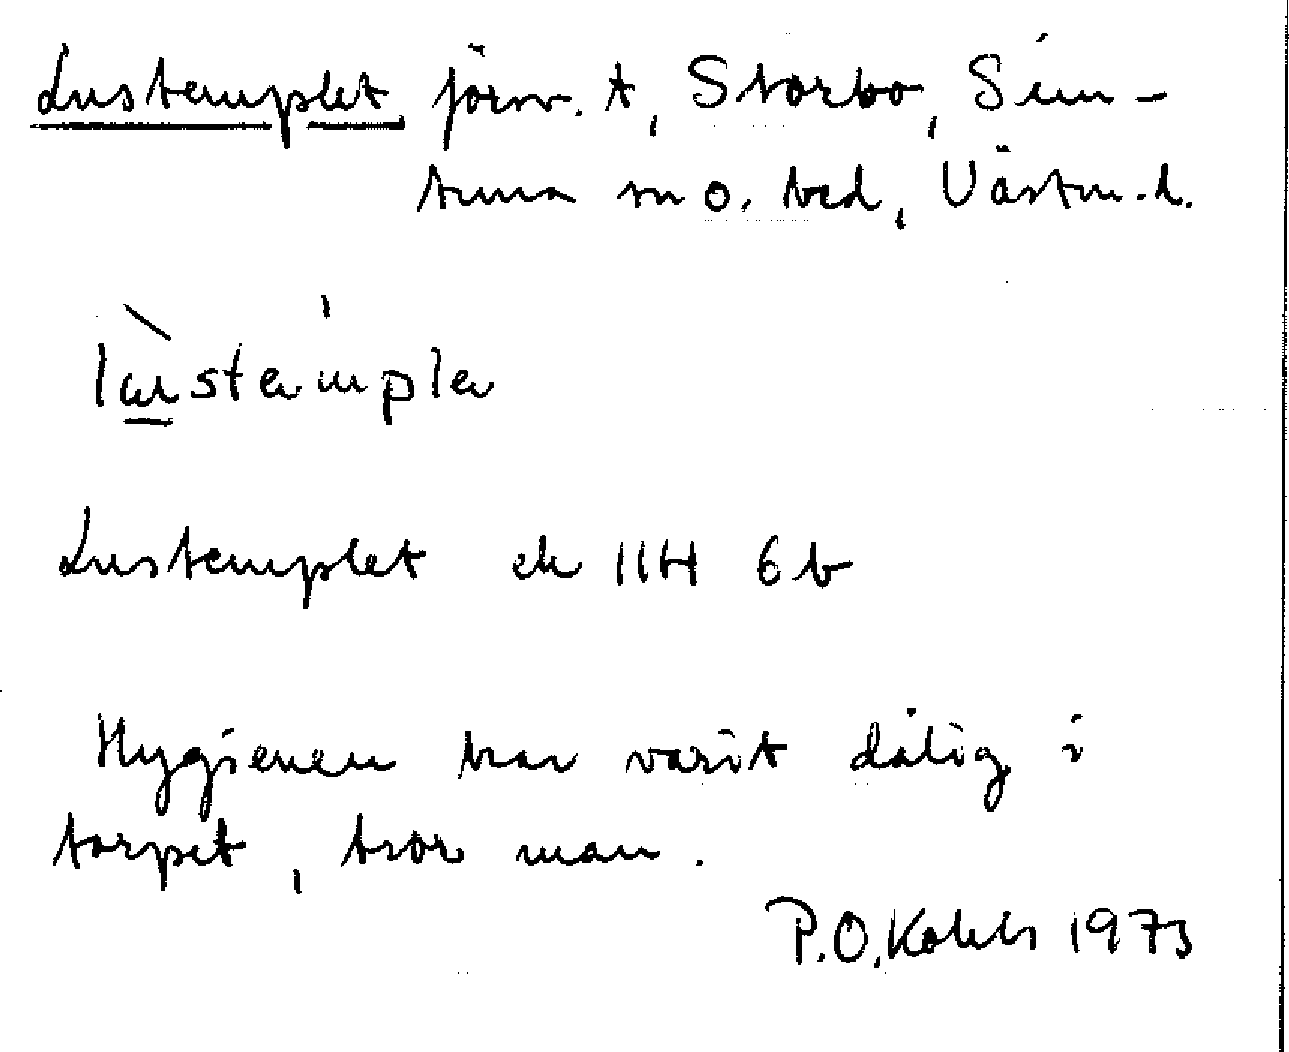 Lustemplet försv. t, Storbo, Sim-
tuna sn o. hd, Västm. l.
lùstämpla
Lustemplet ek 11H 6b
Hygienen har varit dålig i
torpet, tror man.
P.O. 1973